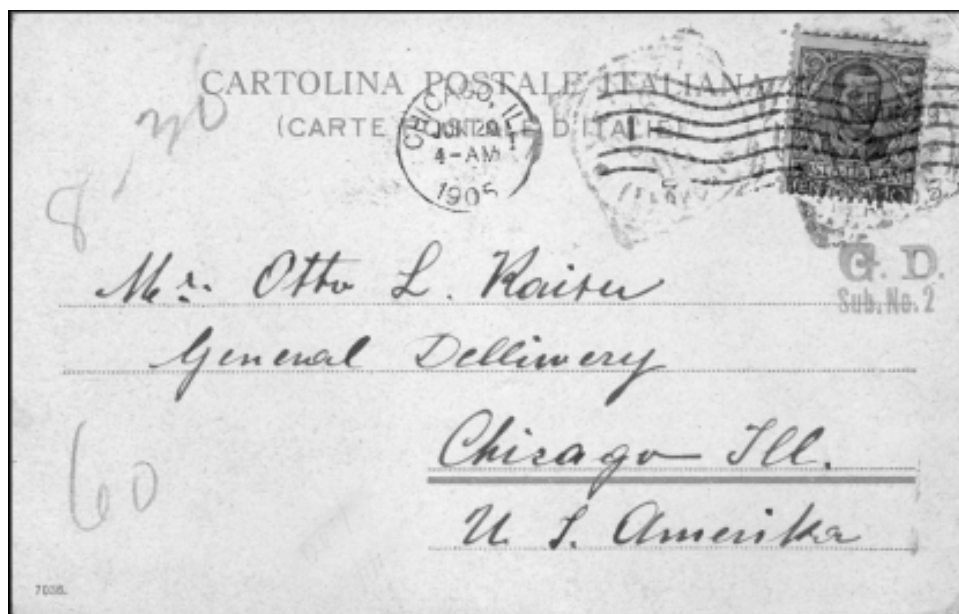 CARTOLINA POSTALE ITALIANA
(CARTE POSTALE D'ITALIE)
CHICAGO, ILL.
JUN 20
4-AM
1905
1
G. D.
Sub. No. 2
Mr. Otto L. Kaiser
General Delliwery
Chicago Ill.
U. S. Amerika
8
30
60
7036.